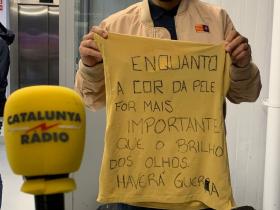 CATALUNYA
RÀDIO
ENQUANTO
A COR DA PELE
FOR MAIS
IMPORTANTE
QUE O BRILHO
DOS OLHOS.
HAVERÁ GUERRA